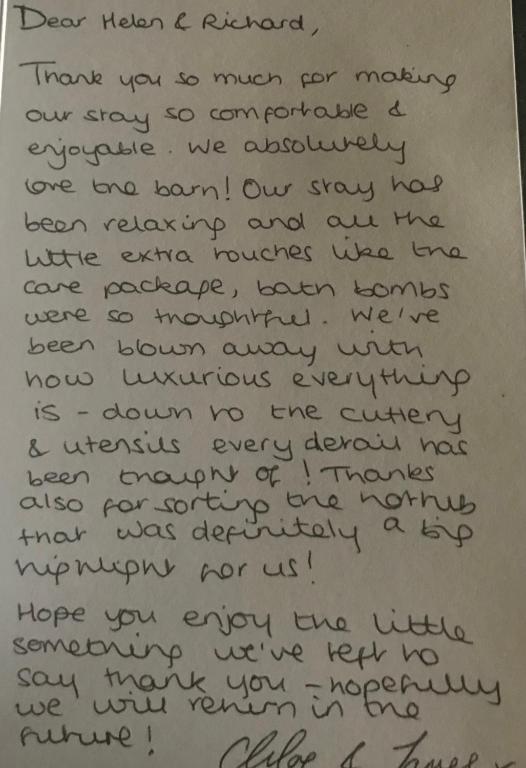 Dear Helen & Richard,
Thank you so much for making
our stay so comfortable &
enjoyable. We absolutely
love the barn! Our stay has
been relaxing and all the
little extra touches like the
care package, bath bombs
were so thoughtful. We've
been blown away with
how luxurious everything
is - down to the cutlery
& utensils every detail has
been thought of! Thanks
also for sorting the hottub
that was definitely a big
highlight for us!
Hope you enjoy the little
something we've left to
say thank you - hopefully
we will return in the
future!
Chloe &